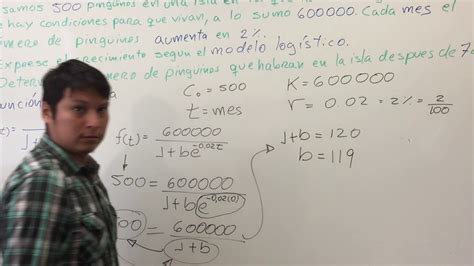 500 pingüinos en una isla en
hay condiciones para que vivan, a lo sumo 600000. Cada mes el
de pingüinos aumenta en 2%.
el crecimiento según el modelo logístico.
de pingüinos que habrán en la isla después de 7
C₀ = 500
K = 600000
t = mes
r = 0.02 = 2% = 2/100
f(t) = 600000 / 1+be^-0,02t
500 = 600000 / 1+be^-0,02(0)
00 = 600000 / 1+b
1+b = 120
b = 119